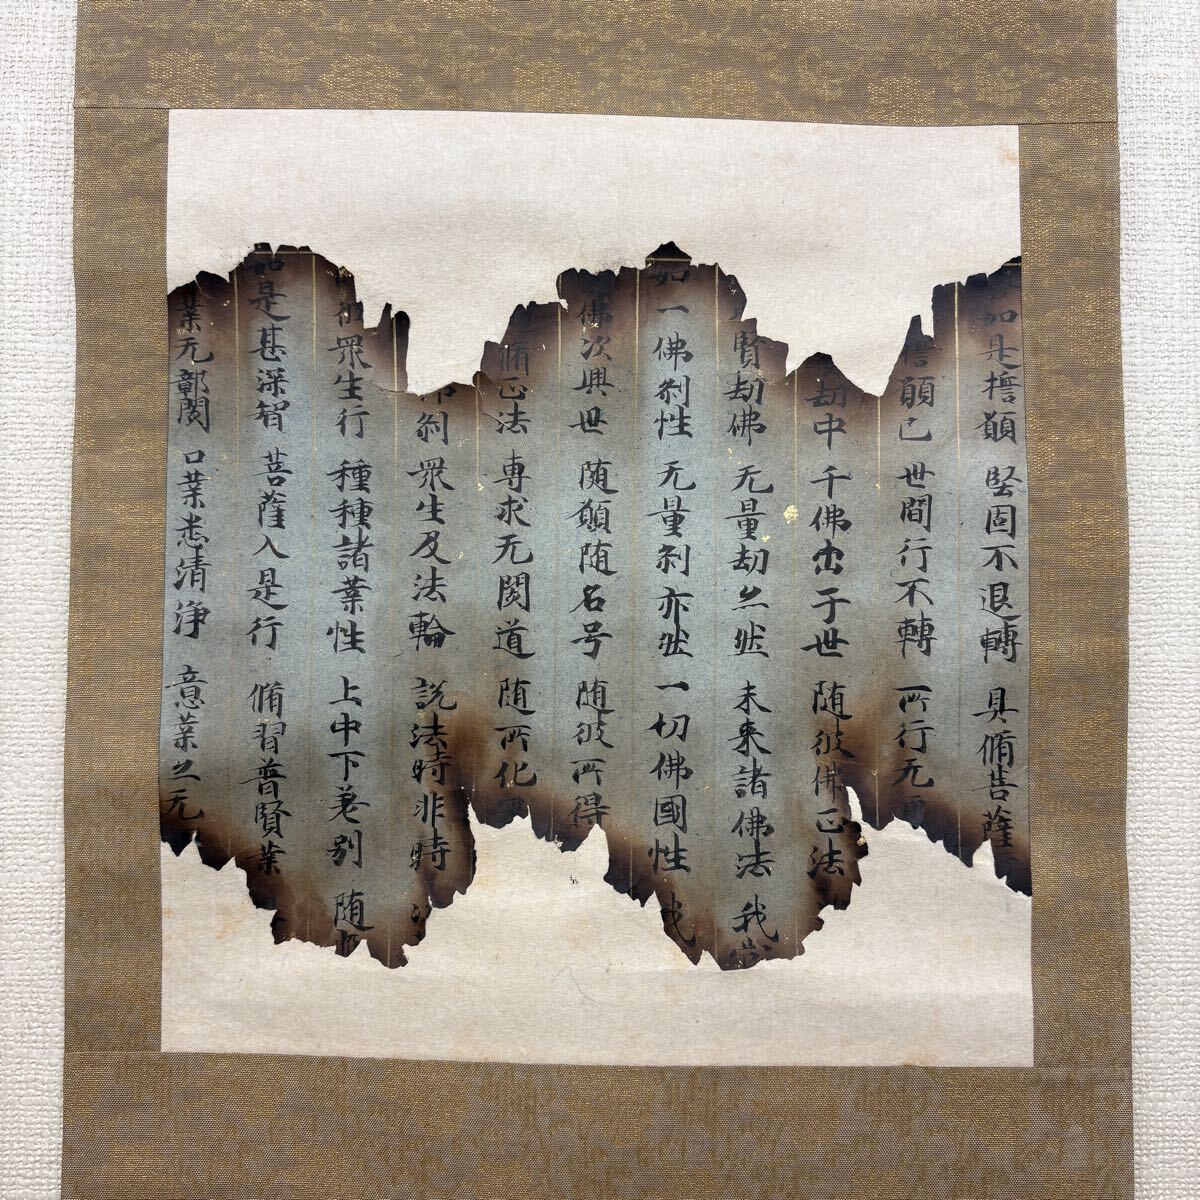 如是擔願 堅固不退轉 具脩菩薩
擔願已 世間行不轉 所行无
劫中 千佛出于世 随彼佛正法
賢劫佛 无量劫亦然 未来諸佛法 我當
如一佛刹性 无量刹亦然 一切佛國性 我
佛次興世 随願随名号 随彼所得
脩正法 專求无閡道 随所化
佛刹 衆生及法輪 説法時非時
彼衆生行 種種諸業性 上中下差别 随
如是甚深智 菩薩入是行 脩習普賢業
業无鄣閡 口業悉清淨 意業亦无